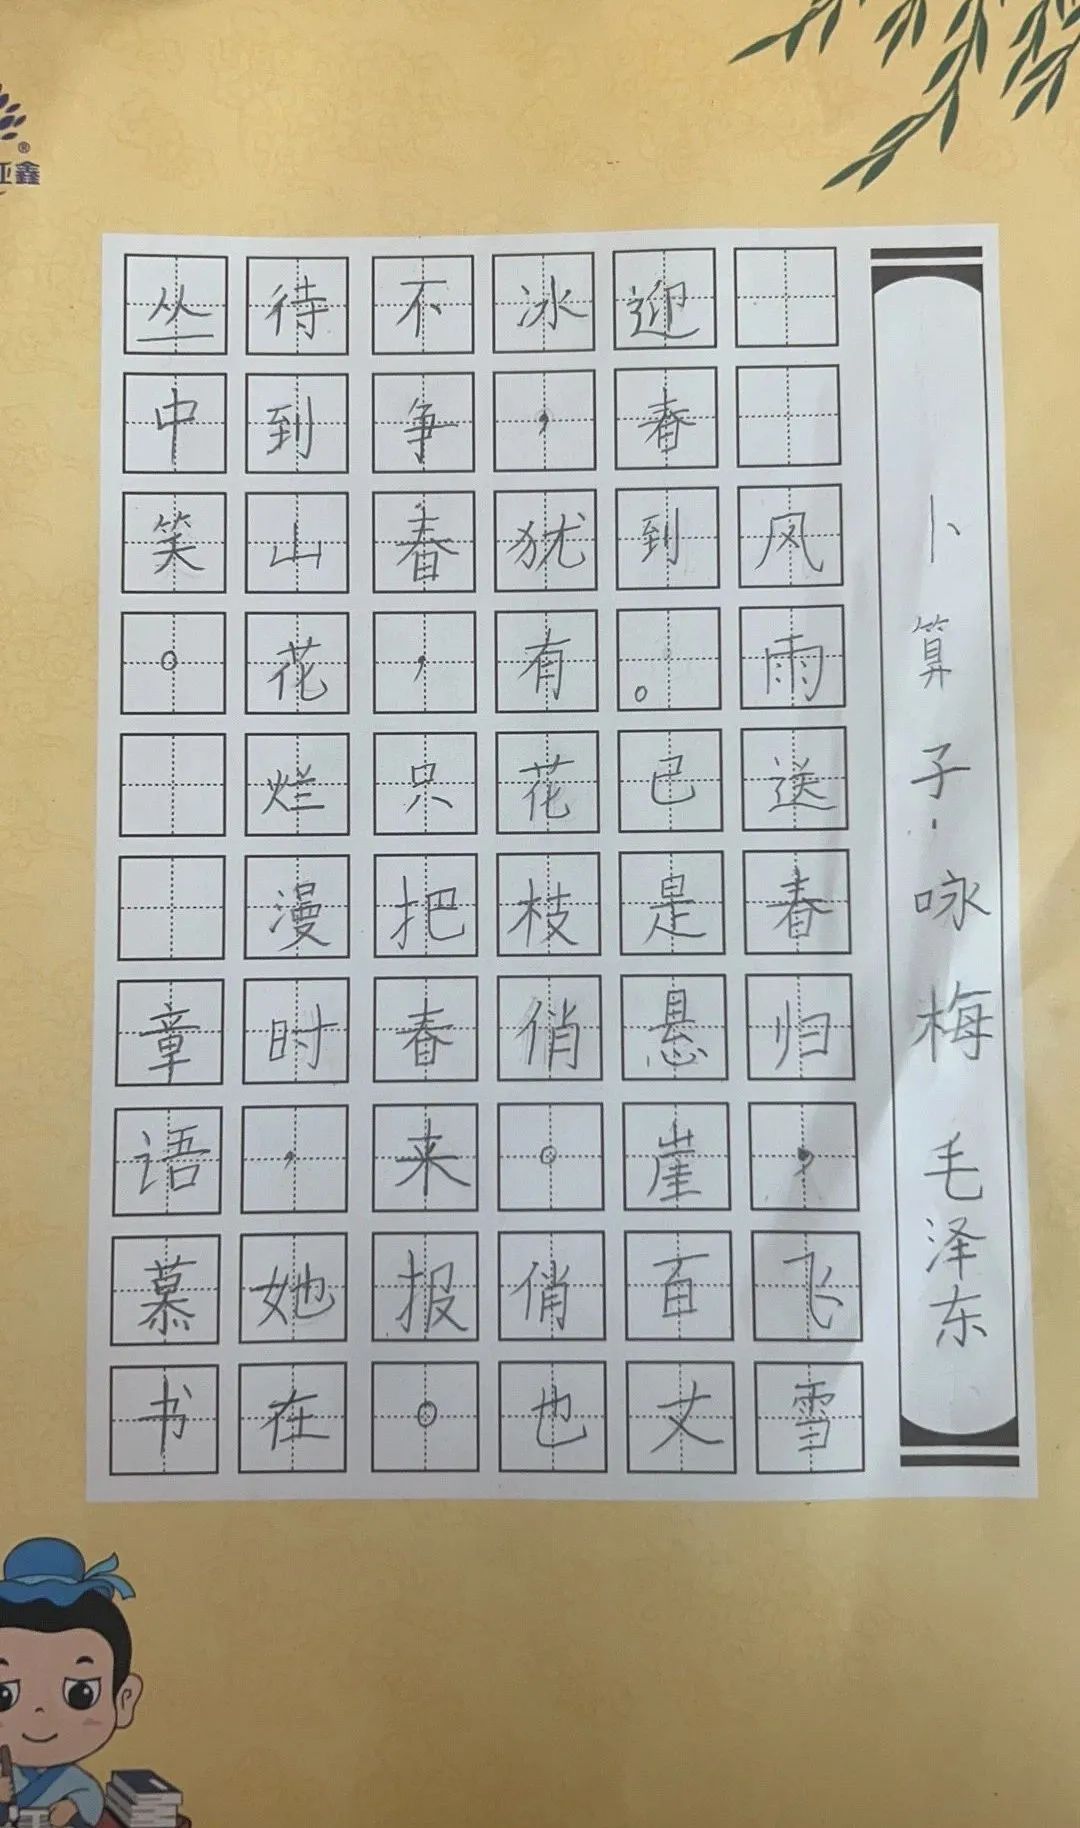 卜算子·咏梅 毛泽东
风雨送春归，飞雪
迎春到。已是悬崖百丈
冰，犹有花枝俏。俏也
不争春，只把春来报。
待到山花烂漫时，她在
丛中笑。章语慕书
亚鑫
®